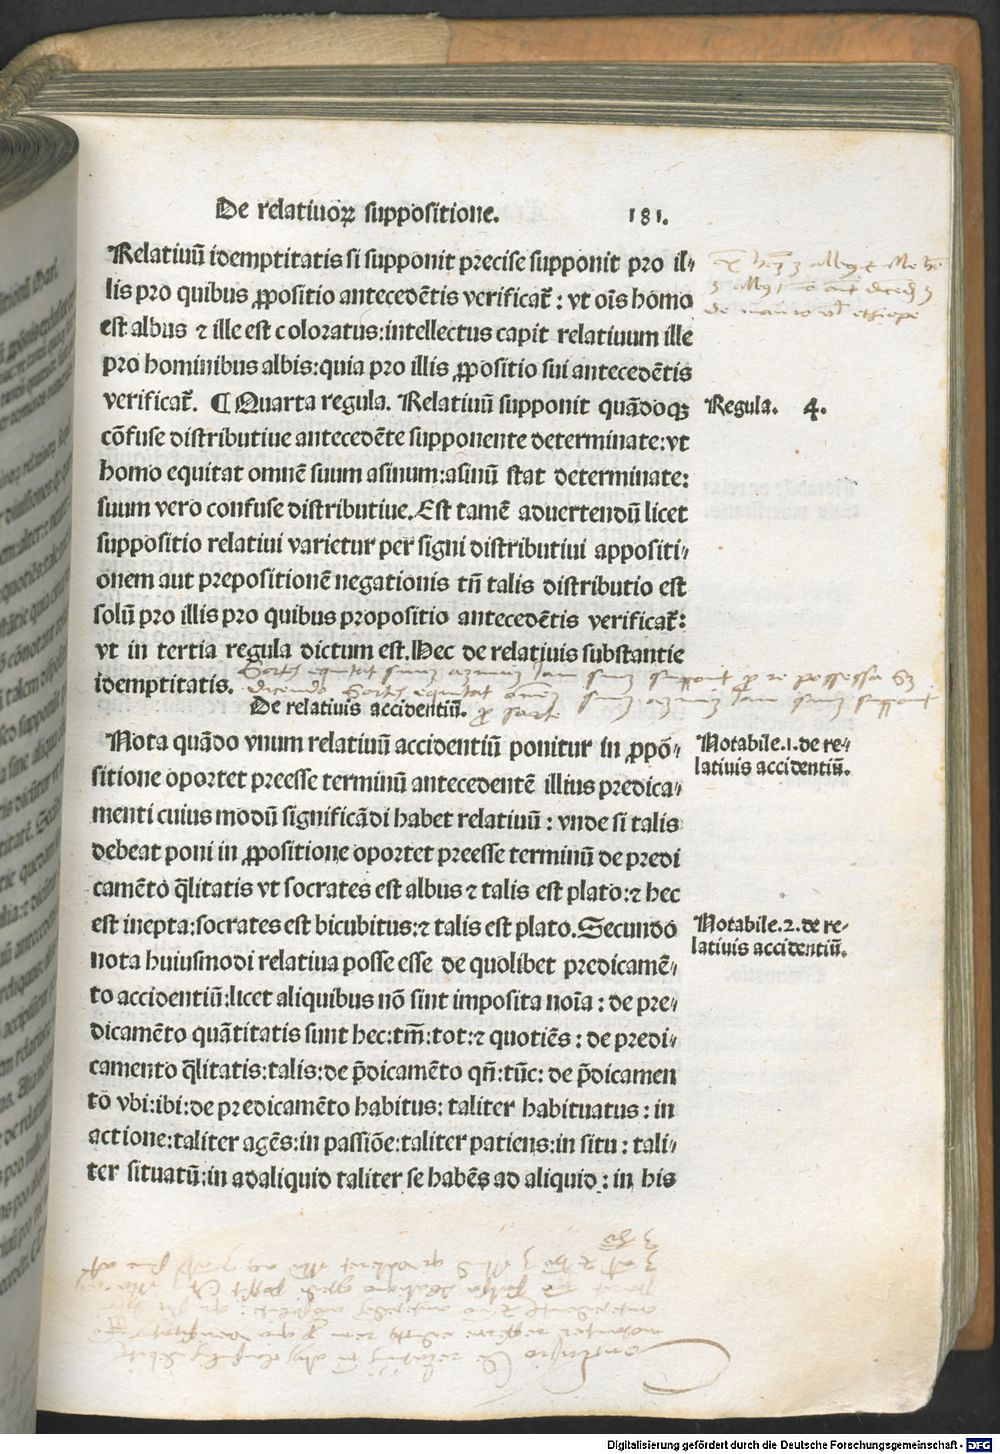 De relatiuoꝝ suppositione. 181.
Relatiuū idemptitatis si supponit precise supponit pro il⸗
lis pro quibus ꝓpositio antecedētis verificat᷑ : vt oīs homo
est albus ⁊ ille est coloratus:intellectus capit relatiuum ille
pro hominibus albis:quia pro illis ꝓpositio sui antecedētis
verificat᷑. ¶ Quarta regula. Relatiuū supponit quādoqꝫ
Regula. 4.
cōfuse distributiue antecedēte supponente determinate:vt
homo equitat omnē suum asinum:asinū stat determinate:
suum vero confuse distributiue.Est tamē aduertendū licet
suppositio relatiui varietur per signi distributiui appositi⸗
onem aut prepositionē negationis tn̄ talis distributio est
solū pro illis pro quibus propositio antecedētis verificat᷑:
vt in tertia regula dictum est.Hec de relatiuis substantie
idemptitatis.
De relatiuis accidentiū.
Nota quādo vnum relatiuū accidentiū ponitur in ꝓpō⸗
Notabile.1.de re⸗
latiuis accidentiū.
sitione oportet preesse terminū antecedentē illius predica⸗
menti cuius modū significādi habet relatiuū : vnde si talis
debeat poni in ꝓpositione oportet preesse terminū de predi
camēto q̄litatis vt socrates est albus ⁊ talis est plato:⁊ hec
est inepta:socrates est bicubitus:⁊ talis est plato.Secundo
Notabile.2.de re⸗
latiuis accidentiū.
nota huiusmodi relatiua posse esse de quolibet predicamē⸗
to accidentiū:licet aliquibus nō sint imposita noīa : de pre⸗
dicamēto quātitatis sunt hec:tm̄:tot:⁊ quotiēs : de predi⸗
camento q̄litatis:talis:de p̄dicamēto qn̄:tūc: de p̄dicamen
to vbi:ibi:de predicamēto habitus: taliter habituatus : in
actione:taliter agēs:in passiōe:taliter patiens:in situ : tali⸗
ter situatū:in adaliquid taliter se habēs ad aliquid : in his
Digitalisierung gefördert durch die Deutsche Forschungsgemeinschaft - DFG